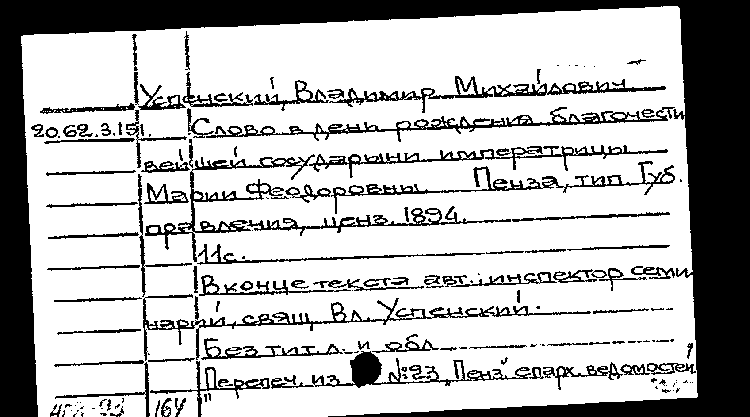 Успенский, Владимир Михайлович.
20.62.3.151. Слово в день рождения благочести
вейшей государыни императрицы
Марии Феодоровны. Пенза, тип. Губ.
правления, ценз. 1894.
11с.
В конце текста авт.: инспектор семи
нарии, свящ. Вл. Успенский.
Без тит. л. и обл.
Перепеч. из №23 "Пенз" епарх. ведомостей
164